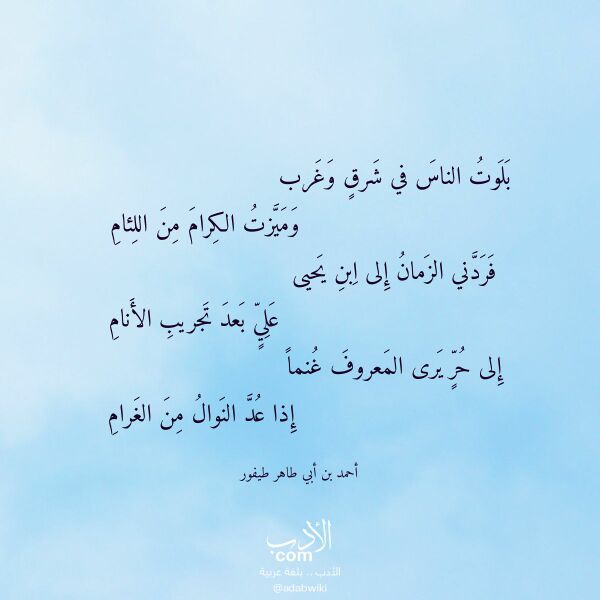 بَلَوتُ الناسَ في شَرقٍ وَغَرب
وَمَيَّزتُ الكِرامَ مِنَ اللِئامِ
فَرَدَّني الزَمانُ إِلى اِبنِ يَحيى
عَلِيٍّ بَعدَ تَجريبِ الأَنامِ
إِلى حُرٍّ يَرى المَعروفَ غُنماً
إِذا عُدَّ النَوالُ مِنَ الغَرامِ
أحمد بن أبي طاهر طيفور
الأدب
com
الأدب .. بلغة عربية
@adabwiki